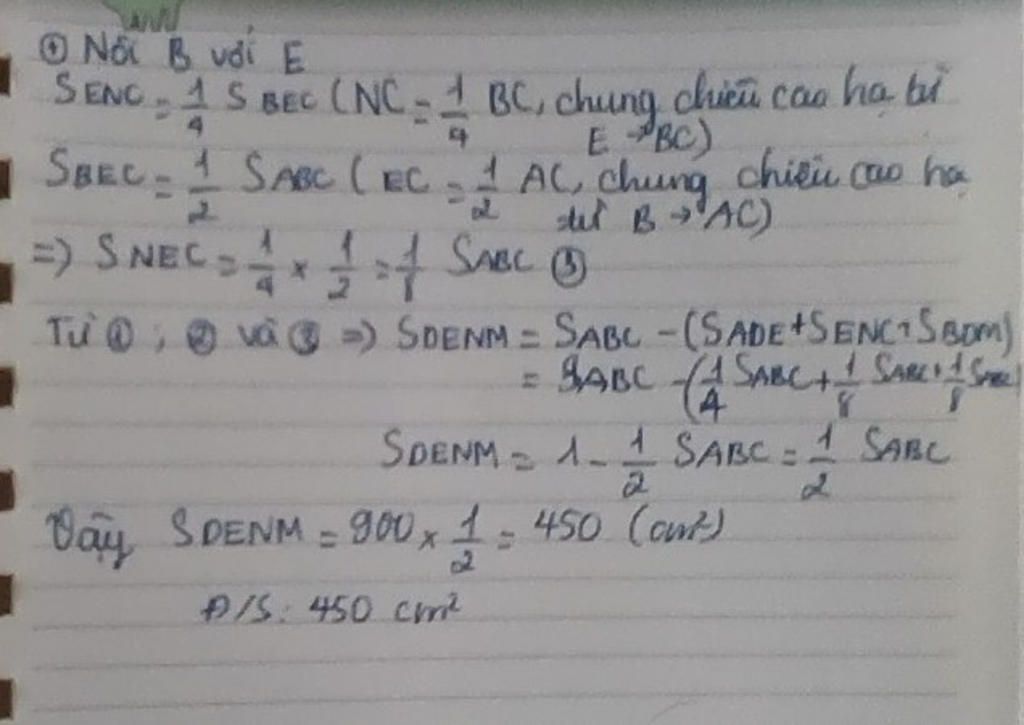 ⊕ Nối B với E
SENC = 1/4 SBEC (NC = 1/4 BC, chung chiều cao hạ từ
E → BC)
SBEC = 1/2 SABC (EC = 1/2 AC, chung chiều cao hạ
từ B → AC)
=) SNEC = 1/4 × 1/2 = 1/8 SABC ③
Từ ①; ② và ③ =) SDENM = SABC - (SADE + SENC + SBDM)
= SABC - (1/4 SABC + 1/8 SABC + 1/8 SABC
SDENM = 1 - 1/2 SABC = 1/2 SABC
Vậy SDENM = 900 × 1/2 = 450 (cm²)
Đ/S: 450 cm²